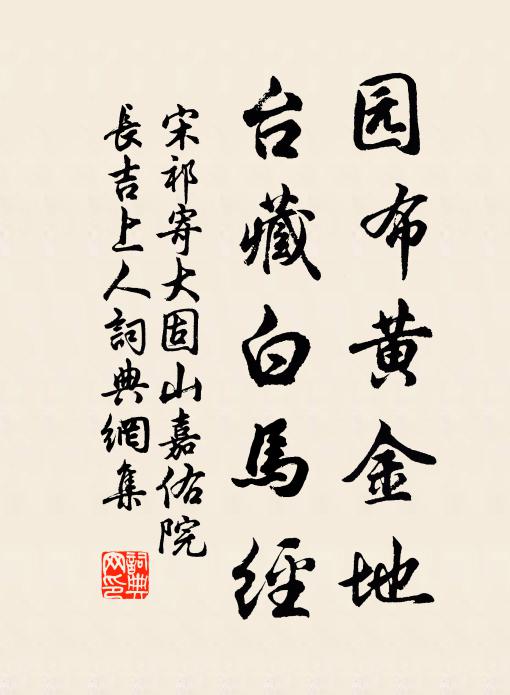 园布黄金地
台藏白馬經
宋祁寄大固山嘉佑院
長吉上人詞典網集
詞典网印